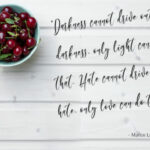 "Darkness cannot drive ou
darkness, only light can
that. Hate cannot drive
hate, only love can do t
- Martin L